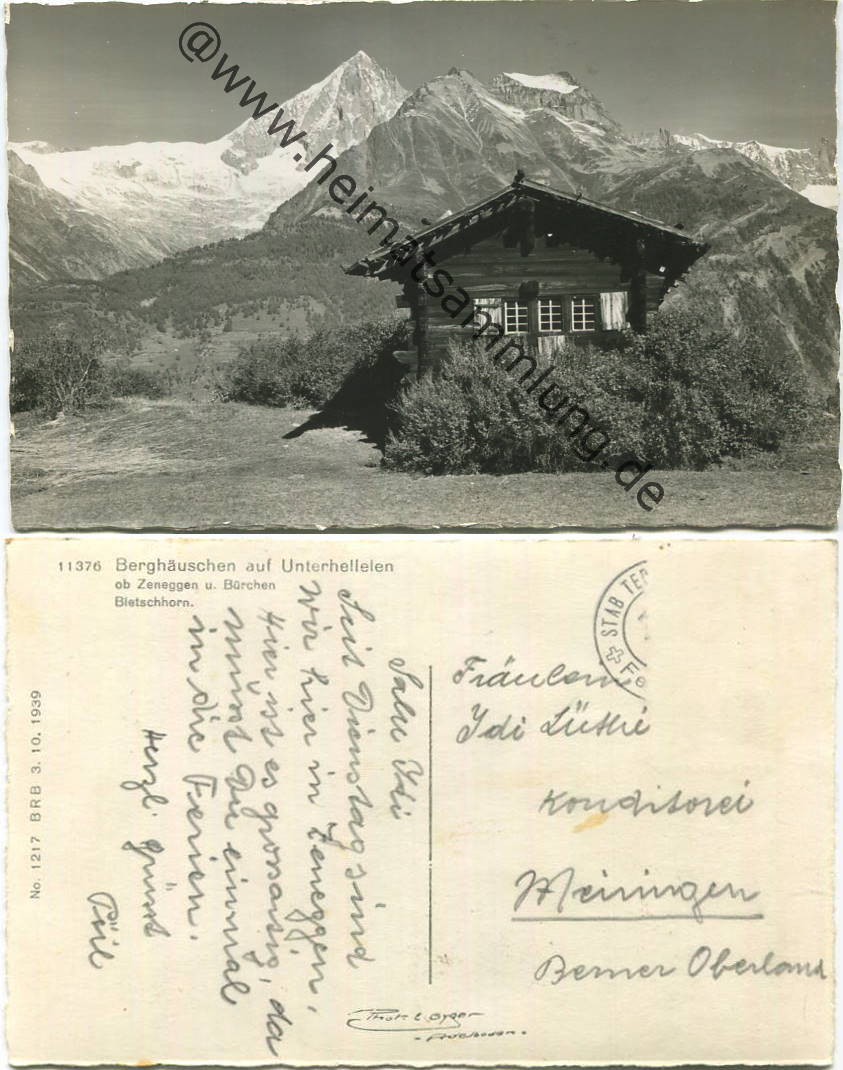 @www.heimatsammlung.de
11376 Berghäuschen auf Unterhellelen
ob Zeneggen u. Bürchen
Bietschhorn.
No. 1217 BRB 3. 10. 1939
Salu Idi
Seit Dienstag sind
wir hier in Zeneggen,
Hier ist es grossartig, da
müsst Du einmal
in die Ferien.
Herzl. Grüsst
STAB TER
Fräulein
Idi Lüthi
Konditorei
Meiringen
Berner Oberland
Phot. Gyger
-Adelboden-